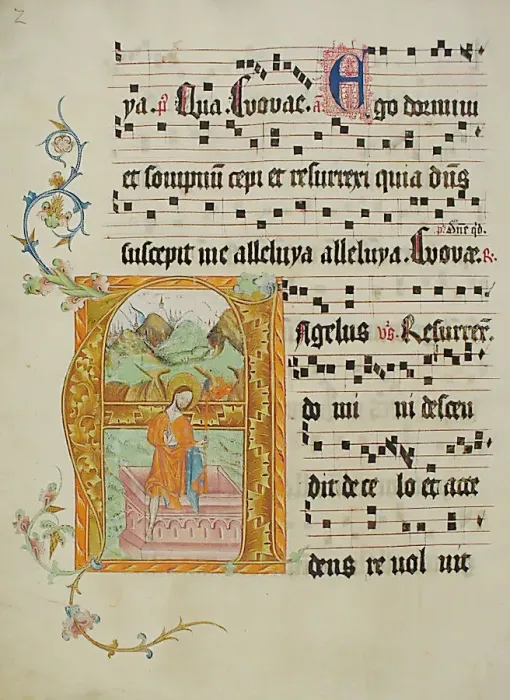 2
ya. Euouae. a Ego dormiui
et sompnū cepi et resurrexi quia dn̄s
p̄. Dn̄e qd.
suscepit me alleluya alleluya. Euouae. R.
ANgelus vs. Resurrex̄.
do mi ni descen
dit de ce lo et acce
dens re uol uit